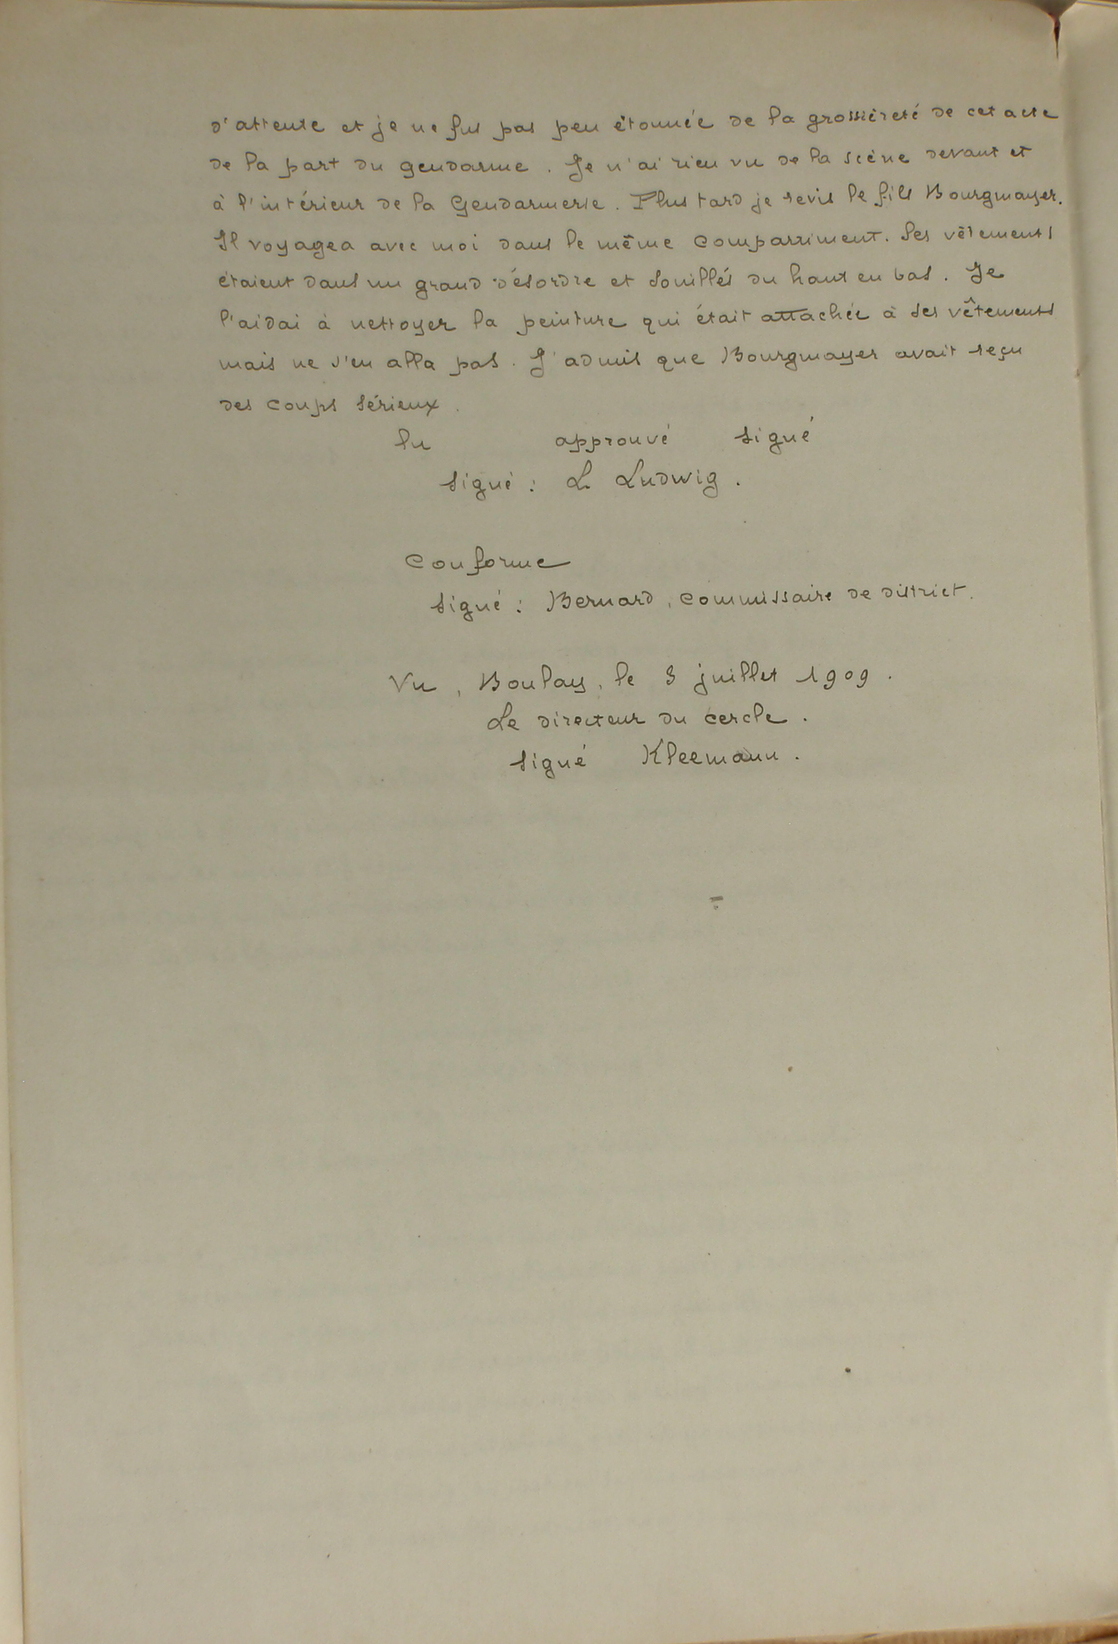 d'attente et je ne fus pas peu étonnée de la grossièreté de cet acte
de la part du gendarme. Je n'ai rien vu de la scène devant et
à l'intérieur de la Gendarmerie. Plus tard je revis le fils Bourgmayer.
Il voyagea avec moi dans le même compartiment. Ses vêtements
étaient dans un grand désordre et souillés du haut en bas. Je
l'aidai à nettoyer la peinture qui était attachée à ses vêtements
mais ne s'en alla pas. J'admis que Bourgmayer avait reçu
des coups sérieux.
lu approuvé signé
signé : L Ludwig.
Conforme
signé : Bernard, commissaire de district.
Vu, Boulay, le 3 juillet 1909.
Le directeur du cercle.
signé Kleemann.